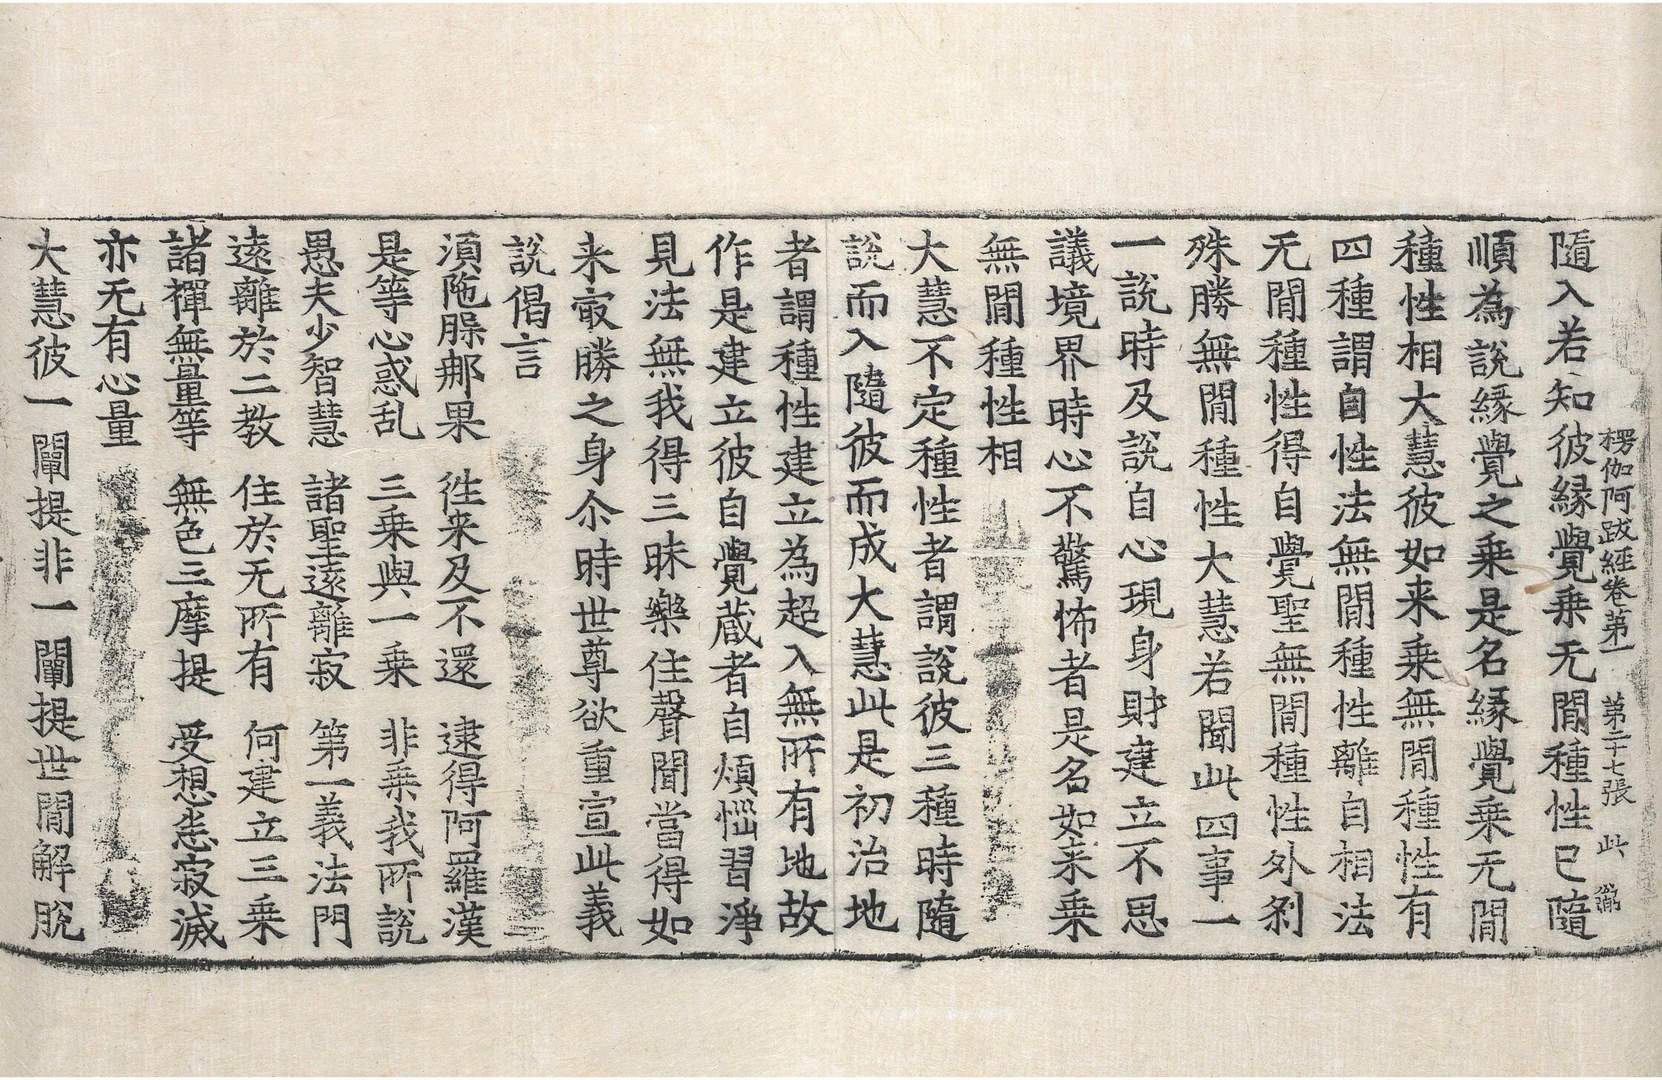 楞伽阿跋經卷第一 第二十七張 此
隨入若知彼緣覺乗无閒種性已隨
順為說緣覺之乗是名緣覺乗无閒
種性相大慧彼如来乗無閒種性有
四種謂自性法無閒種性離自相法
无閒種性得自覺聖無閒種性外剎
殊勝無閒種性大慧若聞此四事一
一說時及說自心現身財建立不思
議境界時心不驚怖者是名如来乗
無閒種性相
大慧不定種性者謂說彼三種時隨
說而入隨彼而成大慧此是初治地
者謂種性建立為超入無所有地故
作是建立彼自覺蔵者自煩惱習淨
見法無我得三昧樂住聲聞當得如
来㝡勝之身尒時世尊欲重宣此義
說偈言
湏陁䐔那果 徃来及不還 逮得阿羅漢
是等心惑乱 三乗與一乗 非乗我所說
愚夫少智慧 諸聖遠離寂 第一義法門
遠離於二教 住於无所有 何建立三乗
諸禪無量等 無色三摩提 受想悉寂滅
亦无有心量
大慧彼一闡提非一闡提世閒解脫